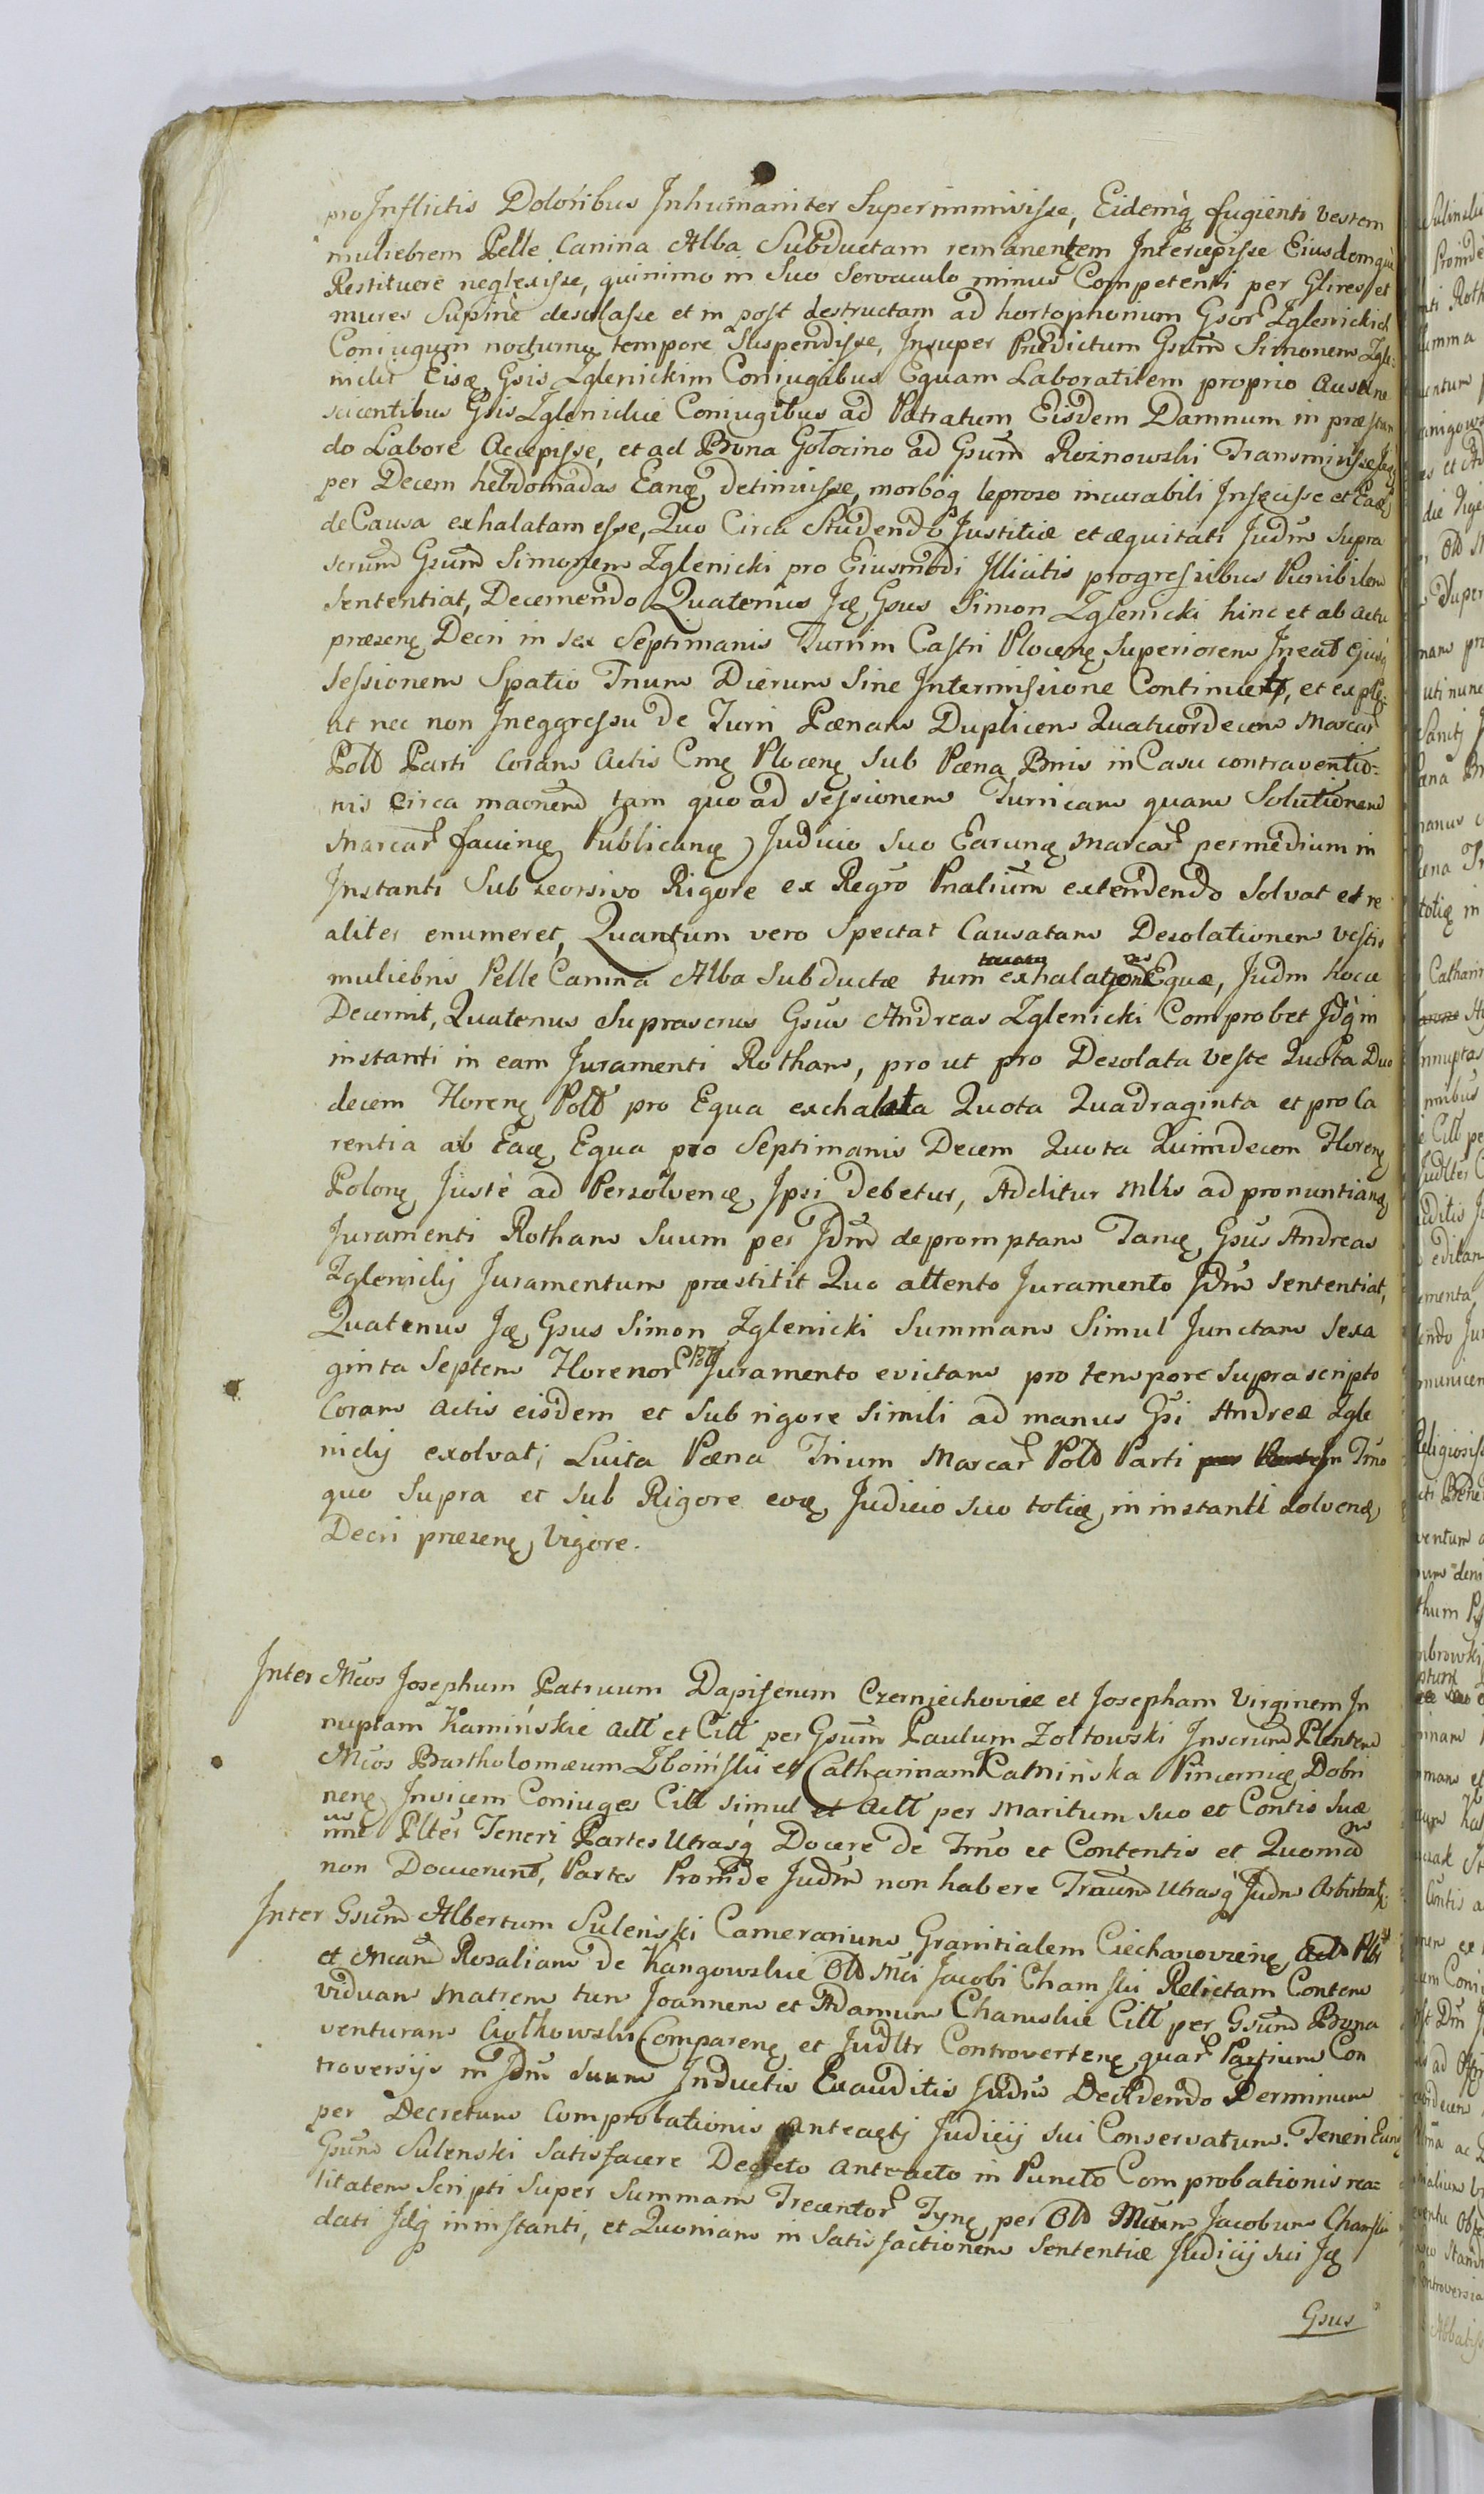 pro Inflictis Doloribus Inhumaniter Superimmisisse, Eidemq fugienti vestem
muliebrem Pelle Canina Alba Subductam remanentem Intercepisse Eiusdemque
Restituere neglexisse, quinimo in Suo Servaculo minus Competenti per Glires et
mures Supine desolasse et in post destructam ad hortophonium Gsor Zglenickich
Coniugum nocturno tempore Suspendisse, Insuper Prædictum Gsum Simonem Zgle-
nicki Eisdę Gsis Zglenickim Coniugibus Equam Laboratilem proprio ausu ne
scientibus Gsis Zglenickie Coniugibus ad Patratum Eisdem Damnum in præstan
do Labore Accepisse, et ad Bona Gołocino ad Gsum Rożnowski Transmisisse
per Decem hebdomadas Eandę detinuisse, morboq leproso incurabili Infecisse et Eadę
de Causa exhalatam esse, Quo Circa Studendo Justitiæ et æquitati Judm Supra
scrum Gsum Simonem Zglenicki pro Eiusmodi Illicitis progressibus Punibilem
Sententiat, Decernendo Quatenus Idę Gsus Simon Zglenicki hinc et ab actu
præsenę Decri in sex Septimanis Turrim Castri Plocenę Superiorem Ineat Ejusq
sessionem Spatio Trium Dierum Sine Intermissione Continuet, et exple-
at nec non Ineggressu de Turri Pœnam Duplicem Quatuordecem Marcar
Poll Parti Coram Actis Cmę Plocenę Sub Pœna Bnis in Casu contraventio-
nis Circa maonem tam quo ad sessionem Turricam quam Solutionem
Marcar facienę Publicanę Judicio suo Earunę Marcar per medium in
Instanti Sub seorsivo Rigore ex Regro Pnalium extendendo Solvat et re
aliter enumeret, Quantum vero Spectat Causatam Desolationem vestis
muliebris Pelle Canina Alba Subductæ tum exhalationes Equæ, Judm hocce
Decernit, Quatenus Suprascrus Gsus Andreas Zglenicki Comprobet Idq in
instanti in eam Juramenti Rotham, pro ut pro Desolata Veste Quota Duo
decem Florenę Poll pro Equa exchalata Quota Quadraginta et pro Ca
rentia ab Eadę Equa pro Septimanis Decem Quota Quindecem Florenę
Polonę Juste ad Persolvenę Ipsi Debetur, Additur Mlis ad pronuntianę
Juramenti Rotham Suum per Jdm depromptam Tanę Gsus Andreas
Zglenicky Juramentum præstitit Quo attento Juramento Jdm Sententiat,
Quatenus Idę Gsus Simon Zglenicki Summam Simul Junctam sexa
ginta Septem Florenor Poll Juramento evictam pro tempore Suprascripto
Coram Actis eisdem et Sub rigore Simili ad manus Gsi Andreæ Zgle
nicky exolvat; Luita Pœna Trium Marcar Poll Parti in Trno
quo Supra et Sub Rigore eodę Judicio suo totidę in instanti Solvenę
Decri præsenę Vigore.
Inter Mcos Josephum Patruum Dapiferum Czerniechoviæ et Josepham Virginem In
nuptam Kamińskie Actt et Citt per Gsum Paulum Zołtowski Inscrum Plentem
Mcos Bartholomæum Zboiński et Catharinam Kamińska Pincernię Dobri
nenę Invicem Coniuges Citt simul et Actt per Maritum suo et Contis Suæ
nne Pltes Teneri Partes Utrasq Docere de Trno et Contentis et Quoniam
non Docuerunt, Partes Proinde Judm non habere Traum Utrasq Judm Arbitratr.
Inter Gsum Albertum Suleński Camerarium Granitialem Ciechanoviene, Act Pltr
et Mcam Rosaliam de Kangowskie Olł Mci Jacobi Chamski Relictam Contem
viduam Matrem tum Joannem et Adamum Chamskie Citt per Gsum Bona
venturam Ciołkowski Comparenę et Judltr Controvertenę quar Partium Con
troversijs in Jdm Suum Inductis Exauditis Judm Decidendo Terminum
per Decretum Comprobationis anteactj Judicij sui Conservatum. Teneri Eunę
Gsum Sulenski Satisfacere Decreto anteacto in Puncto Comprobationis rea-
litatem Scripti Super Summam Trecentor Tynę per Olł Mcum Jacobum Chamski
dati Idq in instanti, et Quoniam in Satisfactionem Sententiæ Judicij sui Idę
Gsus